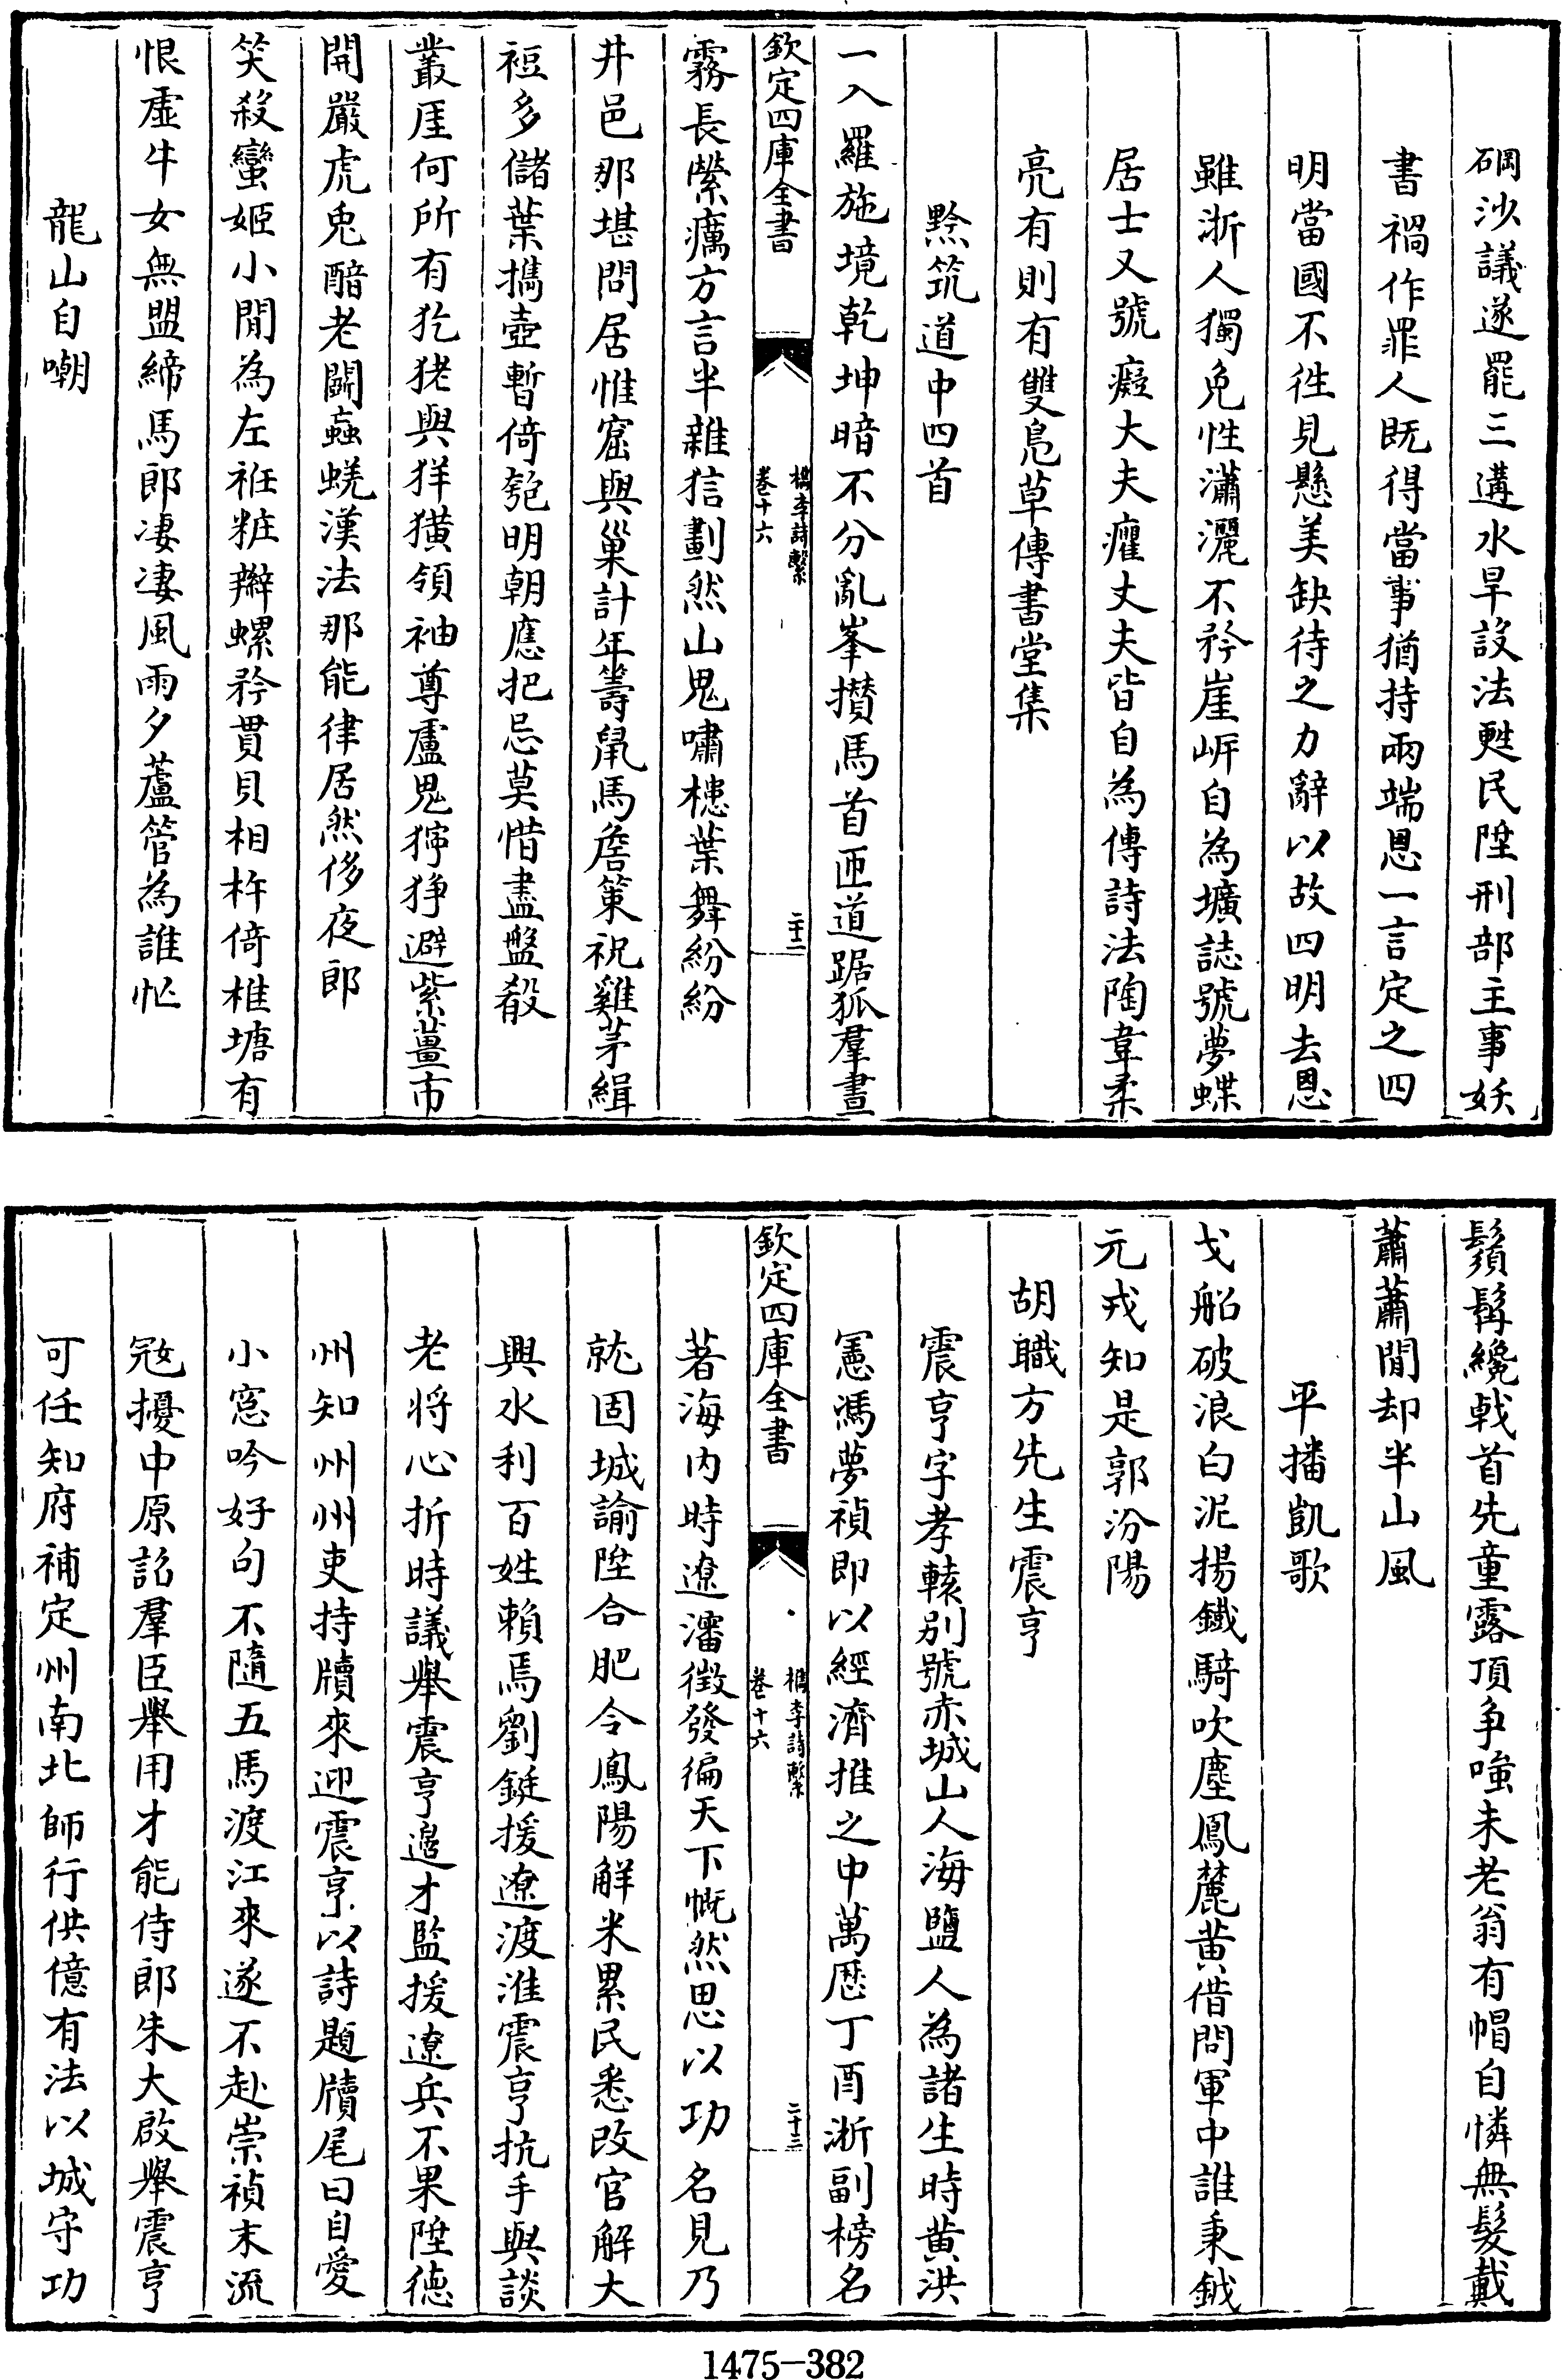 碙沙議遂罷三遘水旱設法甦民陞刑部主事妖
書禍作罪人既得當事猶持兩端恩一言定之四
明當國不徃見懸美缺待之力辭以故四明去恩
雖浙人獨免性瀟灑不矜崖岸自為壙誌號夢蝶
居士又號癡大夫癯丈夫皆自為傳詩法陶韋柔
亮有則有雙鳬草傳書堂集
黔筑道中四首
一入羅施境乾坤暗不分亂峯攅馬首匝道踞狐羣晝
欽定四庫全書
檇李詩繫
卷十六
二十二
霧長縈癘方言半雜狺劃然山鬼嘯槵葉舞紛紛
井邑那堪問居惟窟與巢計年籌鼠馬詹策祝雞茅緝
裋多儲葉攜壺暫倚匏明朝應把忌莫惜盡盤殽
叢厓何所有犵狫與𤞏獚領袖尊盧鬼獰狰避紫薑市
開嚴虎兎醅老闢蝱蜣漢法那能律居然侈夜郎
笑殺蠻姬小閒為左袵粧辮螺矜貫貝相杵倚椎塘有
恨虛牛女無盟締馬郎凄凄風雨夕蘆管為誰忙
龍山自嘲
鬚髯纔戟首先童露頂争嗤未老翁有帽自憐無髪戴
蕭蕭閒却半山風
平播凱歌
戈船破浪白泥揚鐵騎吹塵鳳麓黄借問軍中誰秉鉞
元戎知是郭汾陽
胡職方先生震亨
震亨字孝轅别號赤城山人海鹽人為諸生時黄洪
憲馮夢禎即以經濟推之中萬厯丁酉浙副榜名
欽定四庫全書
檇李詩繫
卷十六
二十三
著海内時遼瀋徴發徧天下慨然思以功名見乃
就固城諭陞合肥令鳳陽解米累民悉改官解大
興水利百姓賴焉劉鋌援遼渡淮震亨抗手與談
老将心折時議舉震亨邉才監援遼兵不果陞徳
州知州州吏持牘來迎震亨以詩題牘尾曰自愛
小窓吟好句不隨五馬渡江來遂不赴崇禎末流
冦擾中原詔羣臣舉用才能侍郎朱大啟舉震亨
可任知府補定州南北師行供億有法以城守功
1475-382